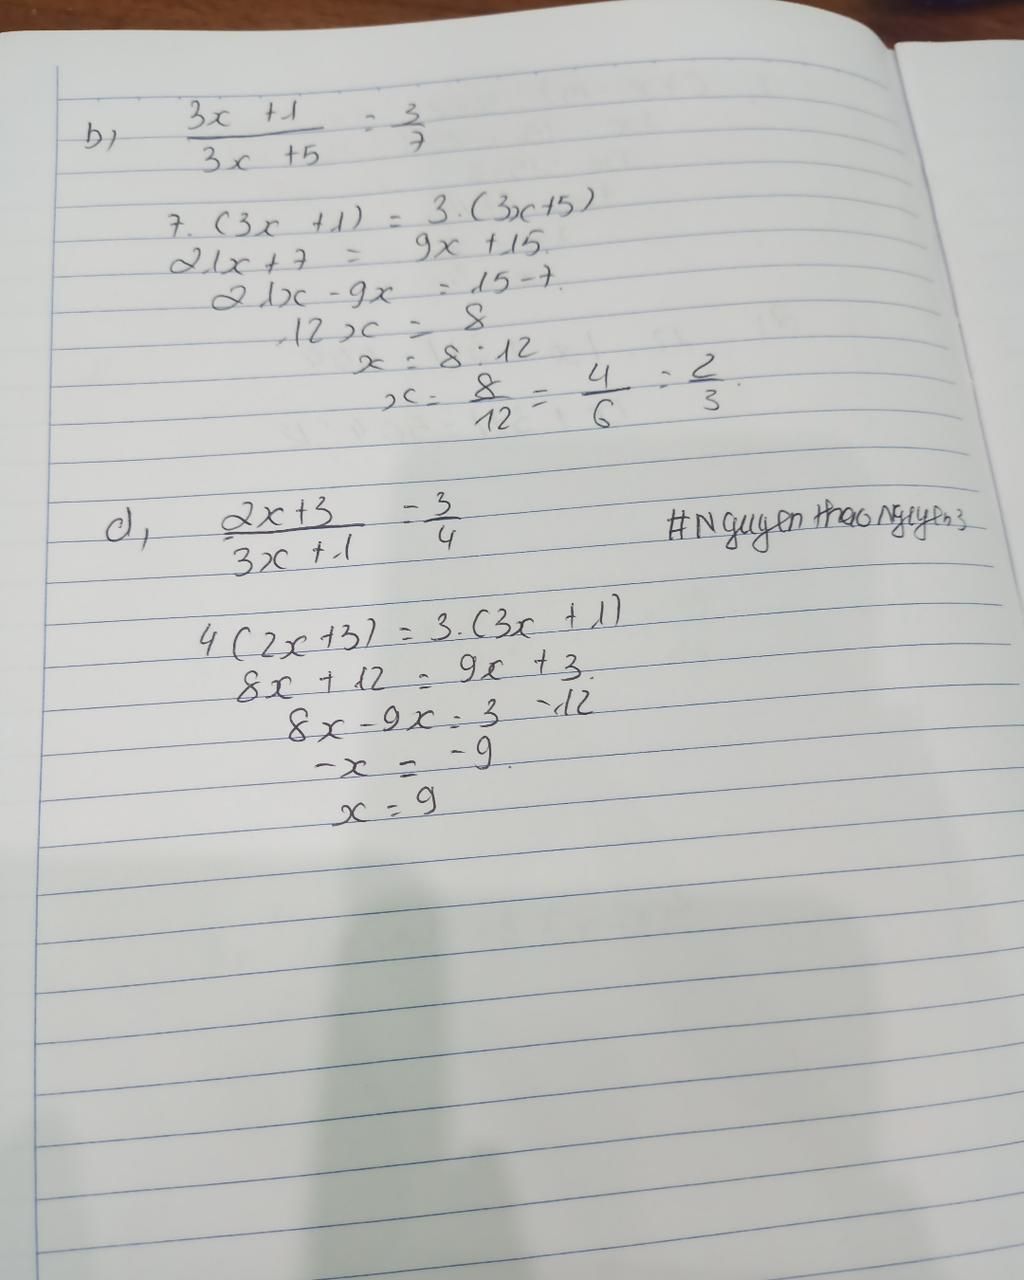 b, 3x + 1 / 3x + 5 = 3/7
7. (3x + 1) = 3. (3x+5)
21x + 7 = 9x + 15.
21x - 9x = 15 - 7.
12x = 8
x = 8 : 12
x = 8/12 = 4/6 = 2/3.
d, 2x+3 / 3x+1 = 3/4
#Nguyen thao Nguyen3
4 (2x+3) = 3. (3x + 1)
8x + 12 = 9x + 3.
8x - 9x = 3 - 12
-x = -9.
x = 9